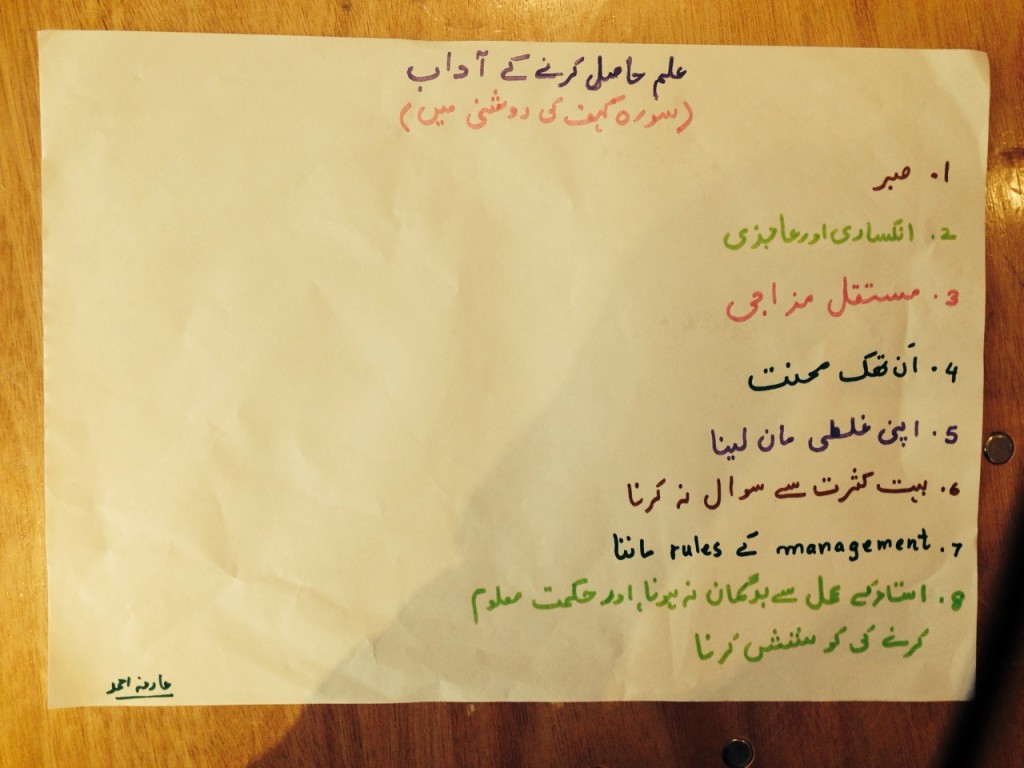 علم حاصل کرنے کے آداب
(سورہ کہف کی روشنی میں)
1. صبر
2. انکساری اور عاجزی
3. مستقل مزاجی
4. اَن تھک محنت
5. اپنی غلطی مان لینا
6. بہت کثرت سے سوال نہ کرنا
7. management کے rules ماننا
8. استاذ کے عمل سے بدگمان نہ ہونا، اور حکمت معلوم
کرنے کی کوشش کرنا
عارفہ احمد